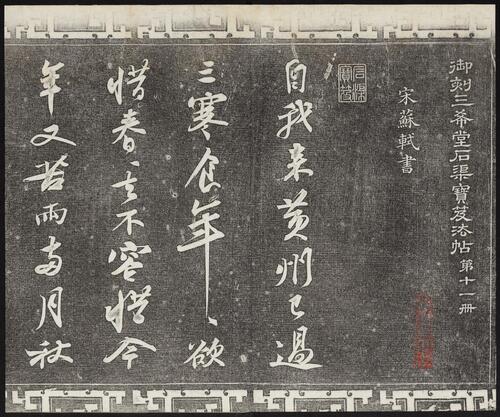 御刻三希堂石渠寶笈法帖 第十一冊
宋蘇軾書
石渠寶笈
自我来黄州已過
三寒食年〻欲
惜春〻去不容惜今
年又苦雨兩月秋